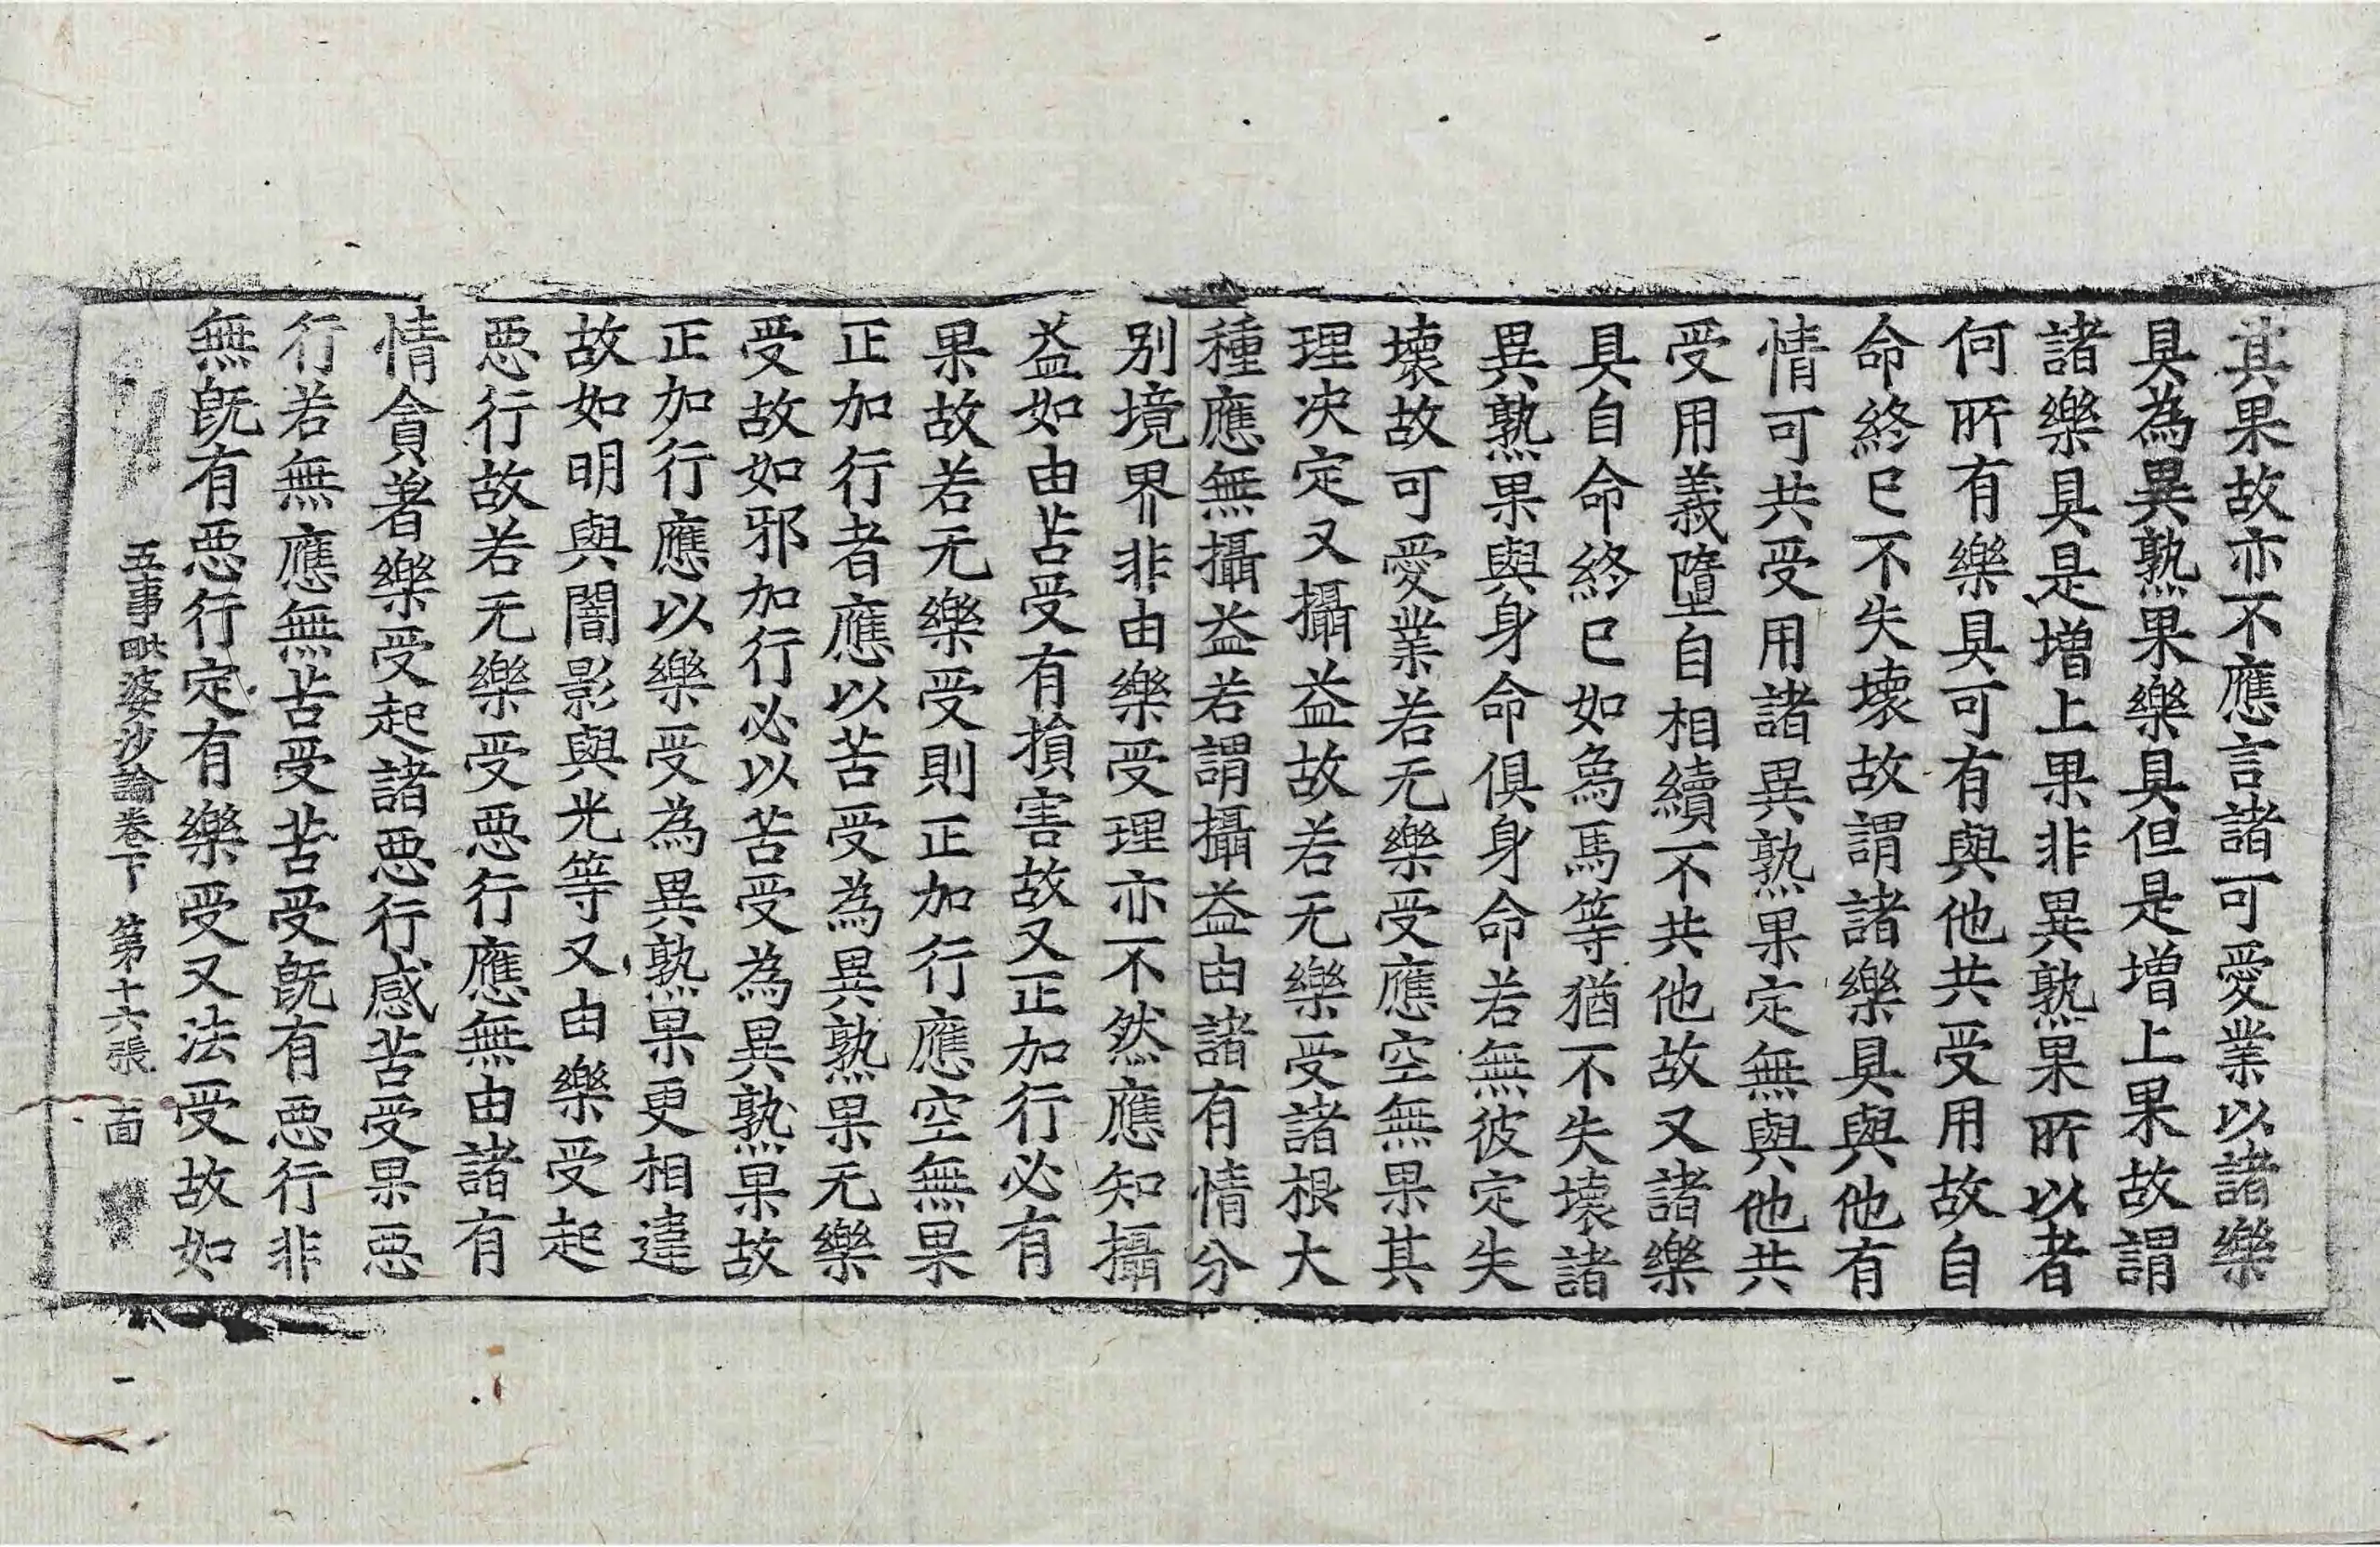 其果故亦不應言諸可愛業以諸樂
具為異熟果樂具但是增上果故謂
諸樂具是增上果非異熟果所以者
何所有樂具可有與他共受用故自
命終已不失壞故謂諸樂具與他有
情可共受用諸異熟果定無與他共
受用義墮自相續不共他故又諸樂
具自命終已如爲馬等猶不失壞諸
異熟果與身命俱身命若無彼定失
壞故可愛業若无樂受應空無果其
理决定又攝益故若无樂受諸根大
種應無攝益若謂攝益由諸有情分
别境界非由樂受理亦不然應知攝
益如由苦受有損害故又正加行必有
果故若无樂受則正加行應空無果
正加行者應以苦受為異熟果无樂
受故如邪加行必以苦受為異熟果故
正加行應以樂受為異熟果更相違
故如明與闇影與光等又由樂受起
惡行故若无樂受惡行應無由諸有
情貪著樂受起諸惡行感苦受果惡
行若無應無苦受苦受旣有惡行非
無旣有惡行定有樂受又法受故如
五事毗婆沙論卷下 第十六張 面